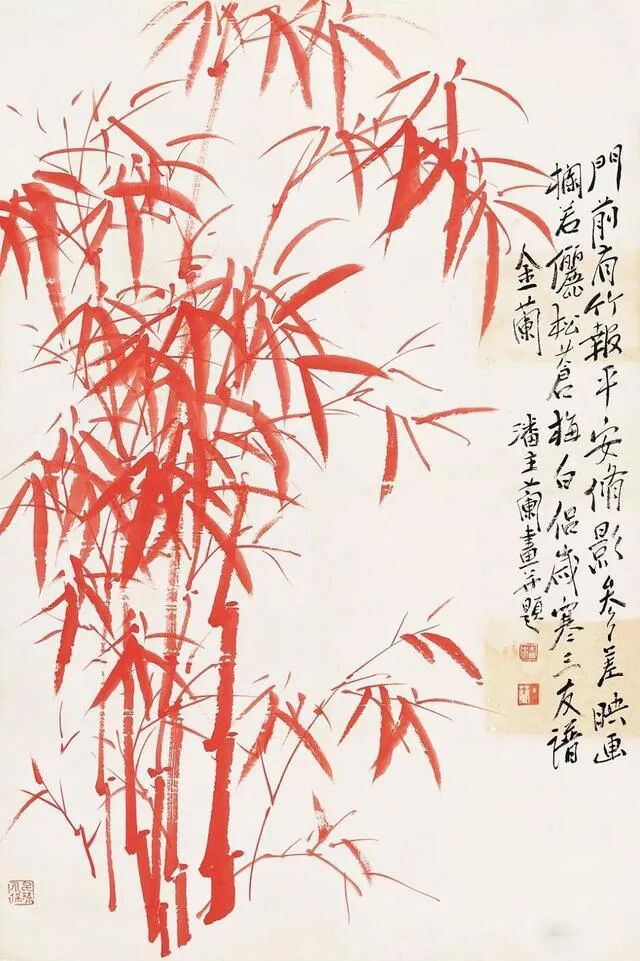 門前有竹報平安脩影參差映画
欄若儷松蒼梅白侶歲寒三友譜
金蘭
潘主蘭畫并題